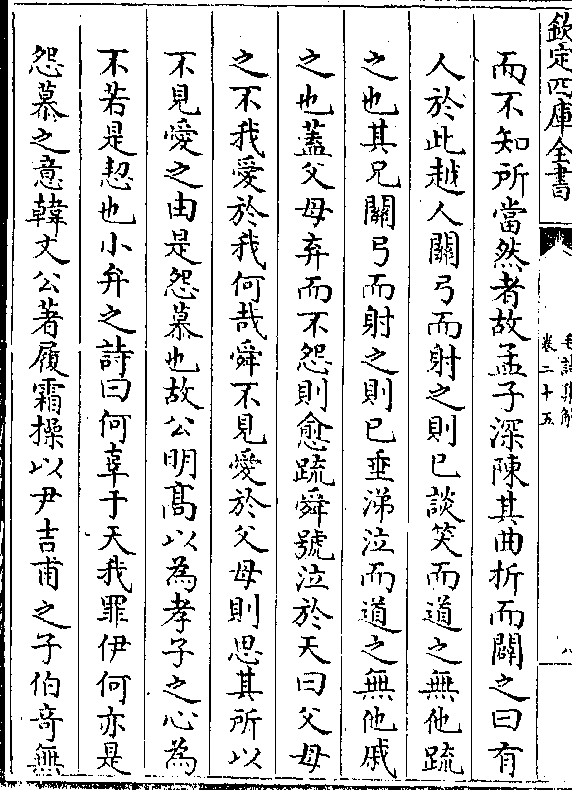 欽定四庫全書
毛詩集解
卷二十五
八
而不知所當然者故孟子深陳其曲折而闢之曰有
人於此越人關弓而射之則已談笑而道之無他疏
之也其兄關弓而射之則已垂涕泣而道之無他戚
之也蓋父母弃而不怨則愈疏舜號泣於天曰父母
之不我愛於我何哉舜不見愛於父母則思其所以
不見愛之由是怨慕也故公明髙以為孝子之心為
不若是恝也小弁之詩曰何辜于天我罪伊何亦是
怨慕之意韓文公著履霜操以尹吉甫之子伯竒無